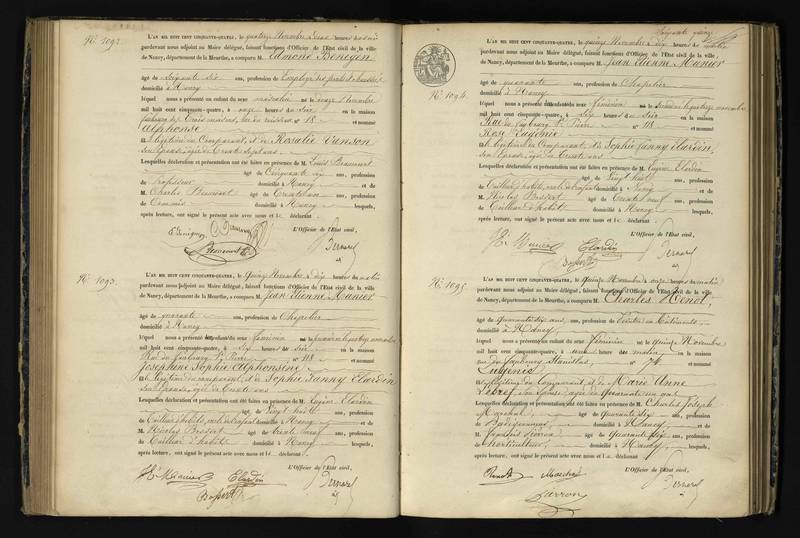 N.° 1092.
L'AN MIL HUIT CENT CINQUANTE-QUATRE, le quatorze Novembre à deux heures
pardevant nous adjoint au Maire délégué, faisant fonctions d'Officier de l'Etat civil de la ville
de Nancy, département de la Meurthe, a comparu M. Edmond Bénigen
âgé de ans, profession de Employé
domicilié à Nancy
lequel nous a présenté un enfant du sexe masculin né le onze Novembre
mil huit cent cinquante-quatre, à onze heures du soir en la maison
faubourg des Trois maisons, n° 18 et nommé
Alphonse
et de Rosalie Vanson
son épouse, âgée de Trente sept ans
Lesquelles déclaration et présentation ont été faites en présence de M. Louis Beaumont
âgé de Cinquante six ans, profession
de Professeur domicilié à Nancy et de
M. Charles Beaumont âgé de ans, profession
de Commis domicilié à Nancy lesquels,
après lecture, ont signé le présent acte avec nous et le déclarant.
L'Officier de l'Etat civil,
N.° 1093.
L'AN MIL HUIT CENT CINQUANTE-QUATRE, le quinze Novembre à dix heures du matin
pardevant nous adjoint au Maire délégué, faisant fonctions d'Officier de l'Etat civil de la ville
de Nancy, département de la Meurthe, a comparu M. Jean Etienne Munier
âgé de quarante ans, profession de Chapelier
domicilié à Nancy
lequel nous a présenté un enfant du sexe féminin né le quatorze novembre
mil huit cent cinquante-quatre, à six heures du soir en la maison
Rue du faubourg St Pierre n° 118 et nommé
Joséphine Sophie Alphonsine
et légitime du comparant, et de Sophie Fanny Elardin
son épouse, âgée de Trente ans
Lesquelles déclaration et présentation ont été faites en présence de M. Eugène Elardin
âgé de Vingt huit ans, profession
de Tailleur d'habits, domicilié à Nancy et de
M. Nicolas Bossert âgé de trente neuf ans, profession
de Tailleur d'habits domicilié à Nancy lesquels,
après lecture, ont signé le présent acte avec nous et le déclarant.
L'Officier de l'Etat civil,
N.° 1094.
L'AN MIL HUIT CENT CINQUANTE-QUATRE, le quinze Novembre à dix heures du matin
pardevant nous adjoint au Maire délégué, faisant fonctions d'Officier de l'Etat civil de la ville
de Nancy, département de la Meurthe, a comparu M. Jean Etienne Munier
âgé de quarante ans, profession de Chapelier
domicilié à Nancy
lequel nous a présenté un enfant du sexe féminin né le quatorze novembre
mil huit cent cinquante-quatre, à six heures du soir en la maison
Rue du faubourg St Pierre n° 118 et nommé
Rose Eugénie
et légitime du Comparant, et de Sophie Fanny Elardin
son épouse, âgée de Trente ans
Lesquelles déclaration et présentation ont été faites en présence de M. Eugène Elardin
âgé de Vingt huit ans, profession
de Tailleur d'habits, domicilié à Nancy et de
M. Nicolas Bossert âgé de trente neuf ans, profession
de Tailleur d'habits domicilié à Nancy lesquels,
après lecture, ont signé le présent acte avec nous et le déclarant.
L'Officier de l'Etat civil,
N.° 1095.
L'AN MIL HUIT CENT CINQUANTE-QUATRE, le quinze Novembre à onze heures du matin
pardevant nous adjoint au Maire délégué, faisant fonctions d'Officier de l'Etat civil de la ville
de Nancy, département de la Meurthe, a comparu M. Charles Henot,
âgé de quarante six ans, profession de Peintre en bâtiments,
domicilié à Nancy,
lequel nous a présenté un enfant du sexe féminin né le quinze Novembre
mil huit cent cinquante-quatre, à une heure du matin, en la maison
rue du faubourg Stanislas, n° 74 et nommé
Eugénie
et légitime du Comparant et de Marie Anne
son épouse, âgée de quarante un ans
Lesquelles déclaration et présentation ont été faites en présence de M. Charles Joseph
Marchal, âgé de quarante six ans, profession
de domicilié à Nancy, et de
M. âgé de quarante six ans, profession
de horticulteur, domicilié à Nancy, lesquels,
après lecture, ont signé le présent acte avec nous et le déclarant.
L'Officier de l'Etat civil,